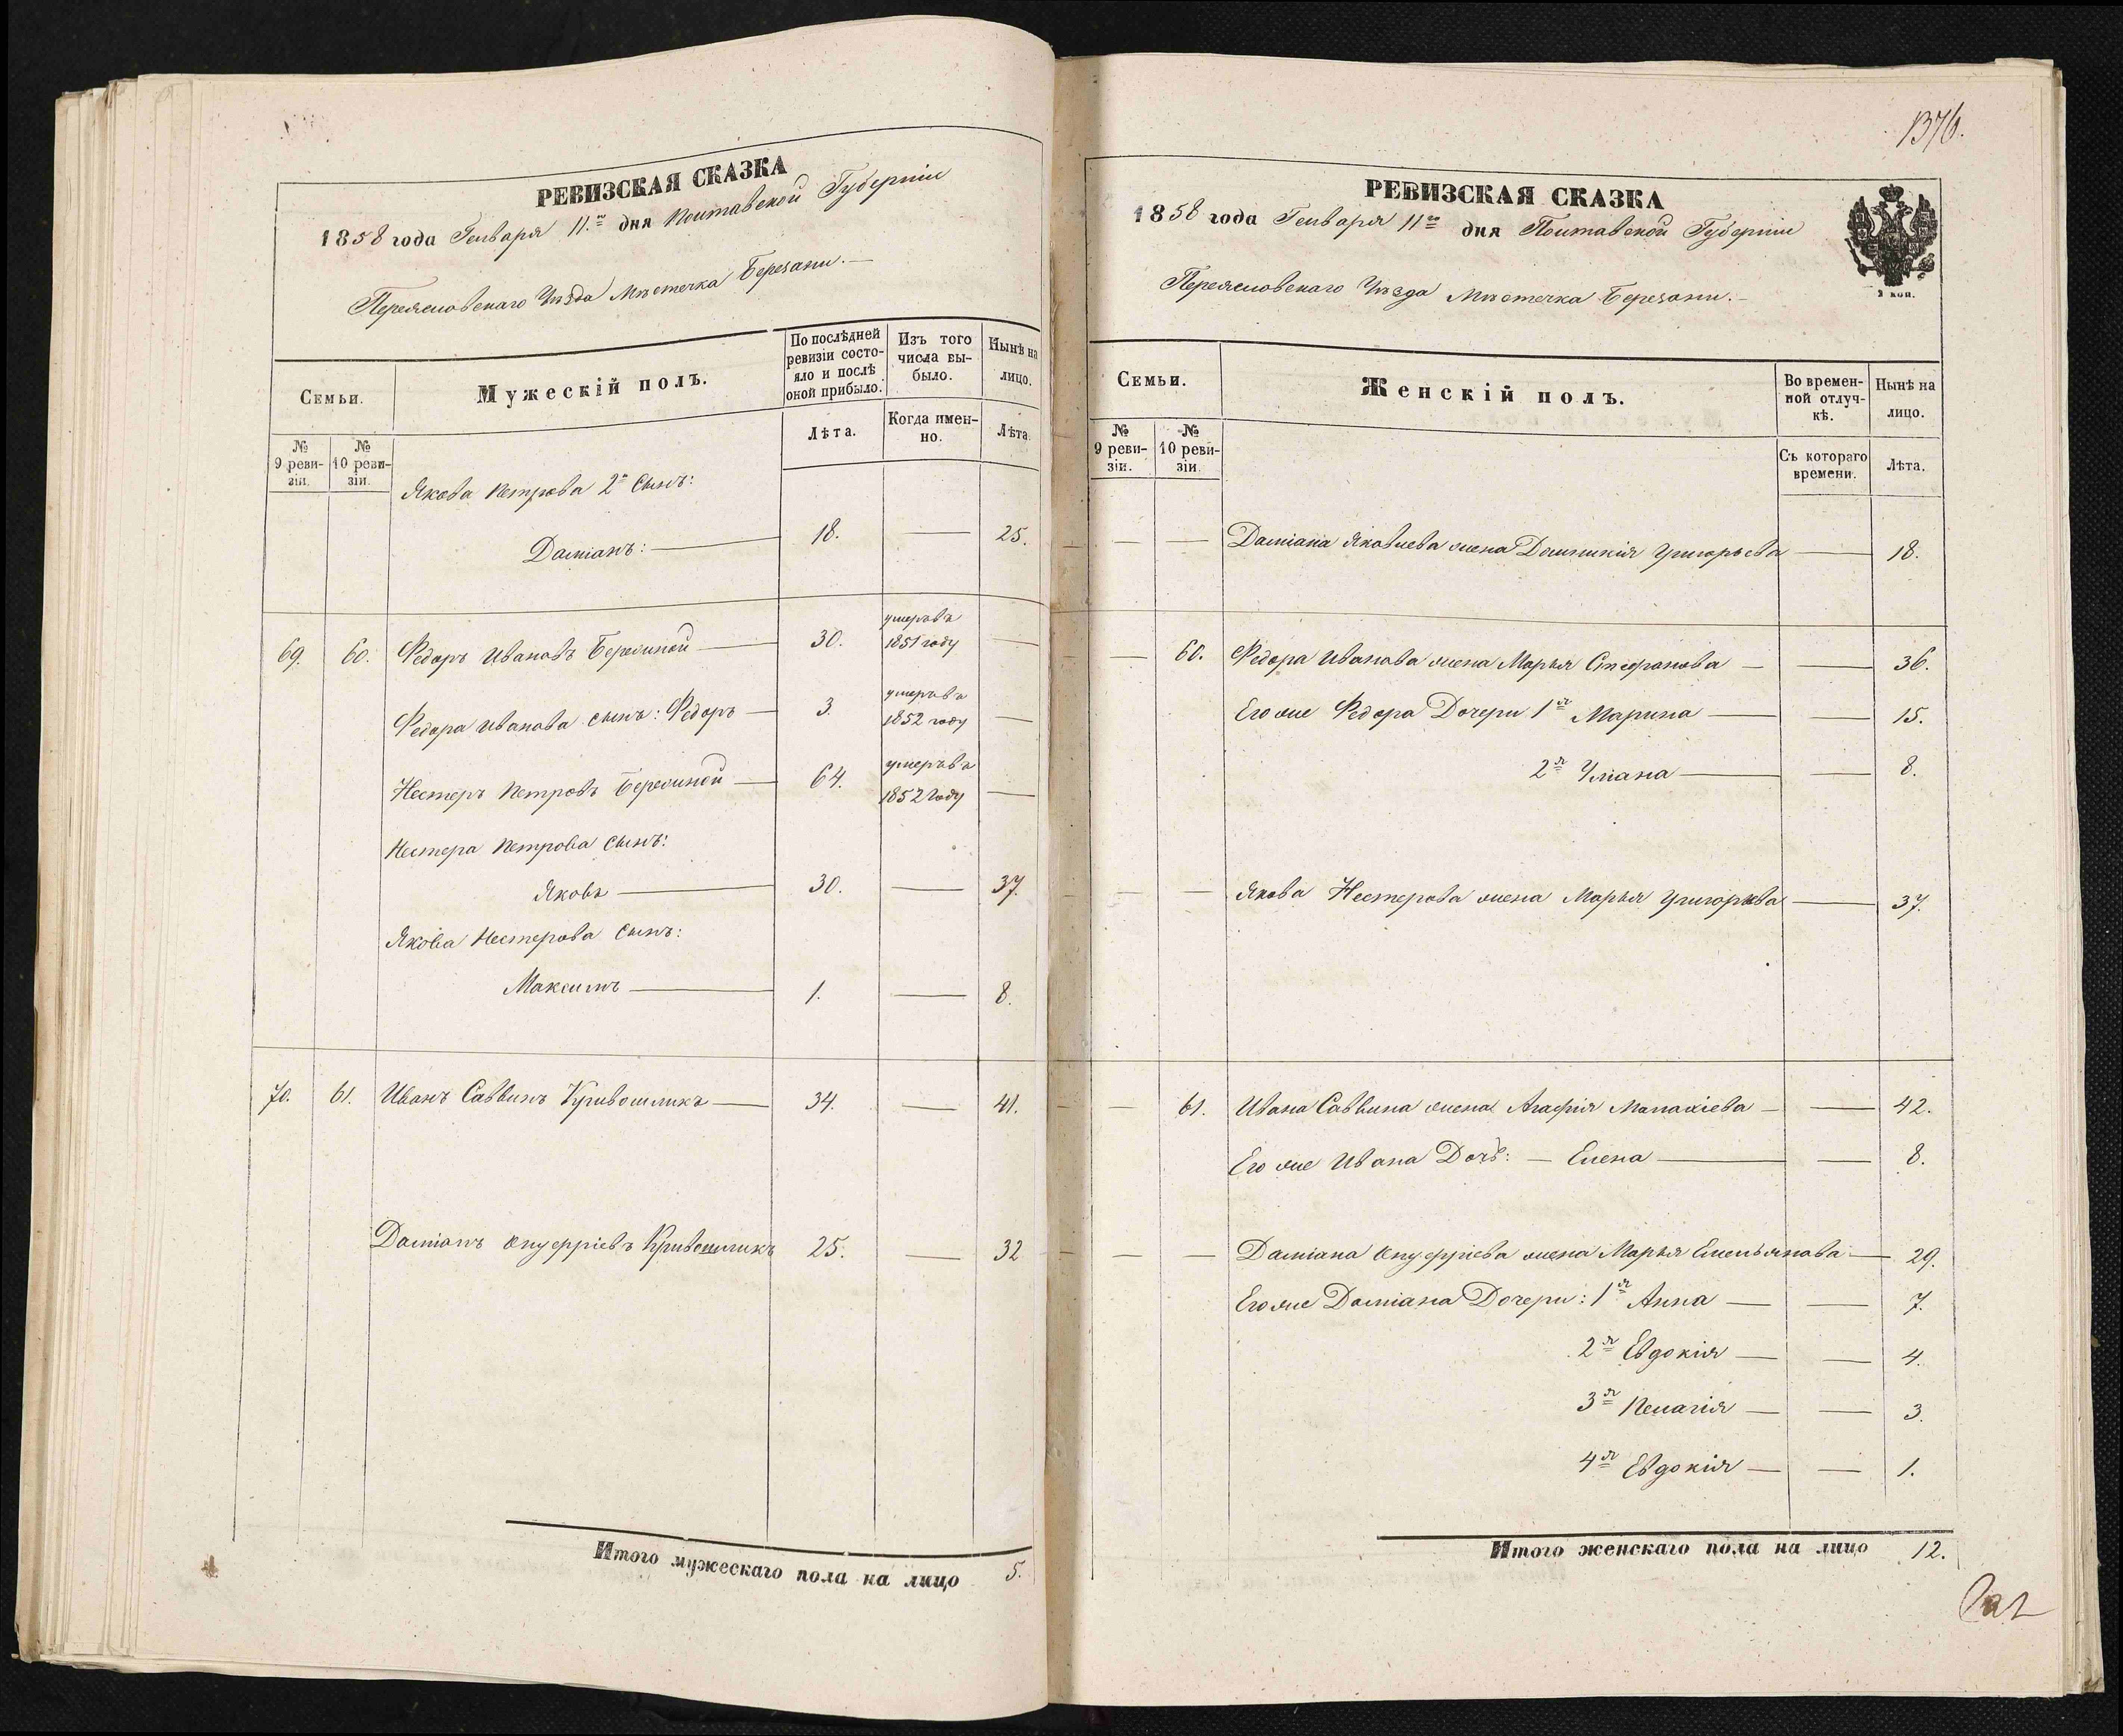 РЕВИЗСКАЯ СКАЗКА
1858 года Генваря 11го дня Полтавской Губерніи
Переяславскаго Уѣзда Мѣстечка Березани.
Семьи.
Мужескій полъ.
По послѣдней ревизіи состояло и послѣ оной прибыло.
Изъ того числа выбыло.
Нынѣ на лицо.
№ 9 ревизіи.
№ 10 ревизіи.
Лѣта.
Когда именно.
Лѣта.
Якова Петрова 2й Сынъ:
Даміанъ: 18. — 25.
69. 60. Федоръ Ивановъ 30. умеръ въ 1851 году —
Федора Иванова сынъ: Федоръ — 3. умеръ въ 1852 году —
Нестеръ Петровъ 64. умеръ въ 1852 Году —
Нестера Петрова Сынъ:
Яковъ — 30. — 37.
Якова Нестерова Сынъ:
Максимъ — 1. — 8.
70. 61. Иванъ Саввинъ Кривошликъ — 34. — 41.
Даміанъ Онуфріевъ Кривошликъ 25. — 32
Итого мужескаго пола на лицо 5.
1376.
РЕВИЗСКАЯ СКАЗКА
1858 года Генваря 11го дня Полтавской Губерніи
Переяславскаго Уѣзда Мѣстечка Березани.
Семьи.
Женскій полъ.
Во временной отлучкѣ.
Нынѣ на лицо.
№ 9 ревизіи.
№ 10 ревизіи.
Съ котораго времени.
Лѣта.
— — Даміана Яковлева жена Домникія Григорьева — 18.
— 60. Федора Иванова жена Марья Стефанова — — 36.
Его же Федора Дочери 1я Марина — — 15.
2я Уліана — — 8.
— — Якова Нестерова жена Марья Григорьева — 37.
— 61. Ивана Саввина жена Агафія Малахіева — — 42.
Его же Ивана Дочь: — Елена — — 8.
— — Даміана Онуфріева жена Марья Емельянова — 29.
Его же Даміана Дочери: 1я Анна — — 7.
2я Евдокія — — 4.
3я Пелагія — — 3.
4я Евдокія — — 1.
Итого женскаго пола на лицо 12.